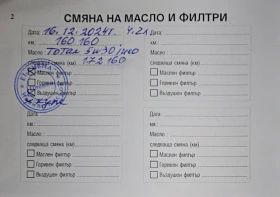 2
СМЯНА НА МАСЛО И ФИЛТРИ
Дата: 16.12.2024г.
км: 160 160
Масло: Тотал 5W30
следваща смяна (км) 172 160
Маслен филтър
Горивен филтър
Въздушен филтър
Дата:
км:
Масло:
следваща смяна (км)
Маслен филтър
Горивен филтър
Въздушен филтър
Дата:
км:
Масло:
следваща смяна (км)
Маслен филтър
Горивен филтър
Въздушен филтър
Дата:
км:
Масло:
следваща смяна (км)
Маслен филтър
Горивен филтър
Въздушен филтър